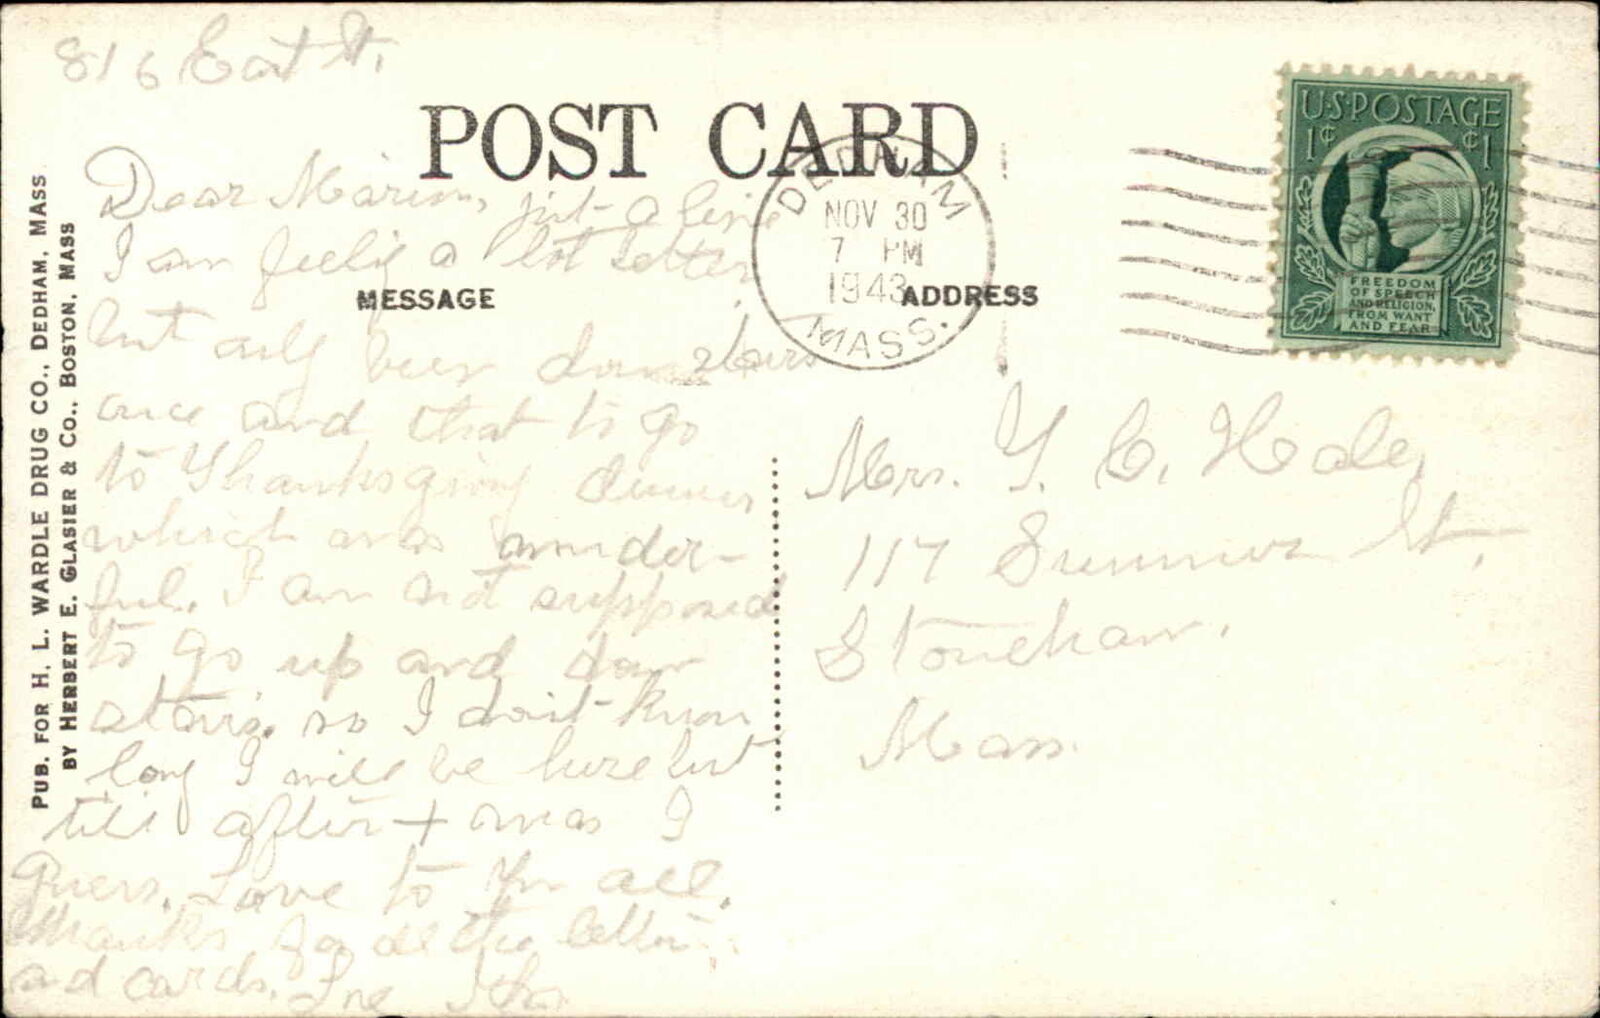 816 East St.
POST CARD
Dear Marion, just a line
I am feelig a lot better
MESSAGE
but only been down stairs
once and that to go
to Thanksgiving dinner
which was wonder-
ful. I am not supposed
to go up and down
stairs. so I don't know
long I will be here but
till after + mas I
guess. Love to you all.
Thanks for all the letters
and cards.
DEDHAM
NOV 30
7 PM
1943
MASS.
ADDRESS
U.S. POSTAGE
1¢ ¢1
FREEDOM
OF SPEECH
AND RELIGION,
FROM WANT
AND FEAR
Mrs. Y. C. Hale,
117 Summer St,
Stoneham,
Mass.
PUB. FOR H. L. WARDLE DRUG CO., DEDHAM, MASS
BY HERBERT E. GLASIER & CO., BOSTON, MASS